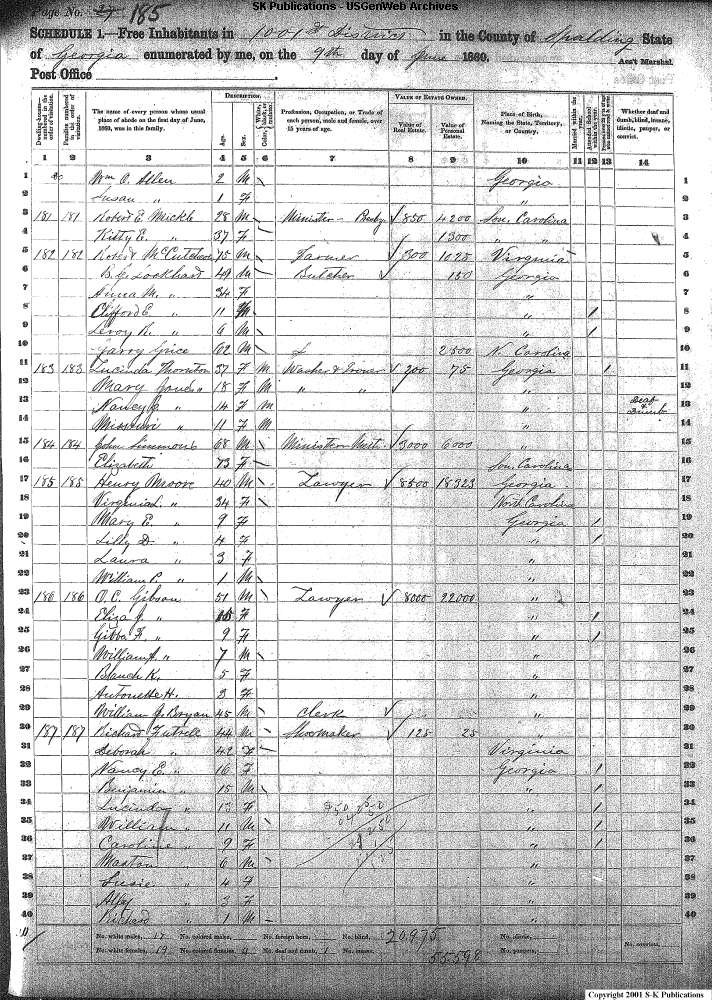 SK Publications - USGenWeb Archives
Page No. 27 185
SCHEDULE 1.—Free Inhabitants in 1001st District in the County of Spalding State
of Georgia enumerated by me, on the 9th day of June 1860. Ass't Marshal.
Post Office
Dwelling-houses—numbered in the order of visitation. Families numbered in the order of visitation. The name of every person whose usual place of abode on the first day of June, 1860, was in this family. DESCRIPTION. Age. Sex. Color, Profession, Occupation, or Trade of each person, male and female, over 15 years of age. VALUE OF ESTATE OWNED. Value of Real Estate. Value of Personal Estate. Place of Birth, Naming the State, Territory, or Country. Married within the year. Attended School within the year. Whether deaf and dumb, blind, insane, idiotic, pauper, or convict.
1 2 3 4 5 6 7 8 9 10 11 12 13 14
1 Wm O. Allen 2 M Georgia 1
2 Susan " 1 F " 2
3 181 181 Robert E. Mickle 28 M Minister - 850 4200 Sou. Carolina 3
4 Kitty E. " 37 F 1300 " " 4
5 182 182 Robert McCutchen 75 M Farmer 300 1025 Virginia 5
6 Lockhart 49 M Butcher 150 Georgia 6
7 Anna M. " 34 F " 7
8 Clifford E. " 11 M " / 8
9 Leroy R. " 6 M " / 9
10 Garry Grice 62 M 2500 N. Carolina 10
11 183 183 Lucinda Thornton 37 F M Washer & Ironer 200 75 Georgia / 11
12 Mary Jones " 18 F M " " " 12
13 Nancy " 14 F M " Deaf & Dumb 13
14 Missouri " 11 F M " 14
15 184 184 John Simmons 68 M Minister Meth. 3000 6000 " 15
16 Elizabeth 73 F Sou. Carolina 16
17 185 185 Henry Moore 40 M Lawyer 8500 18323 Georgia 17
18 Virginia " 34 F North Carolina 18
19 Mary E. " 9 F Georgia / 19
20 Lilly D. " 4 F " / 20
21 Laura " 3 F " 21
22 William P. " 1 M " 22
23 186 186 O. C. Gibson 51 M Lawyer 8000 22000 " 23
24 Eliza J. " 15 F " / 24
25 F. " 9 F " / 25
26 William A. " 7 M " 26
27 Blanch K. " 5 F " 27
28 Antonette H. " 3 F " 28
29 William J. Bryan 45 M Clerk " 29
30 187 187 Richard Futrell 44 M Shoemaker 125 25 " 30
31 Deborah " 42 F Virginia 31
32 Nancy E. " 16 F Georgia / 32
33 Benjamin " 15 M " / 33
34 Lucinda " 13 F " / 34
35 William " 11 M " / 35
36 Caroline " 9 F " / 36
37 Maston " 6 M " 37
38 Susie " 4 F " 38
39 " 3 F " 39
40 Richard " 1 M " 40
No. white males, 17 No. colored males, No. foreign born, No. blind, 20,975 No. idiotic, No. convicts,
No. white females, 19 No. colored females, 4 No. deaf and dumb, 1 No. insane, 55598 No. paupers,
Copyright 2001 S-K Publications